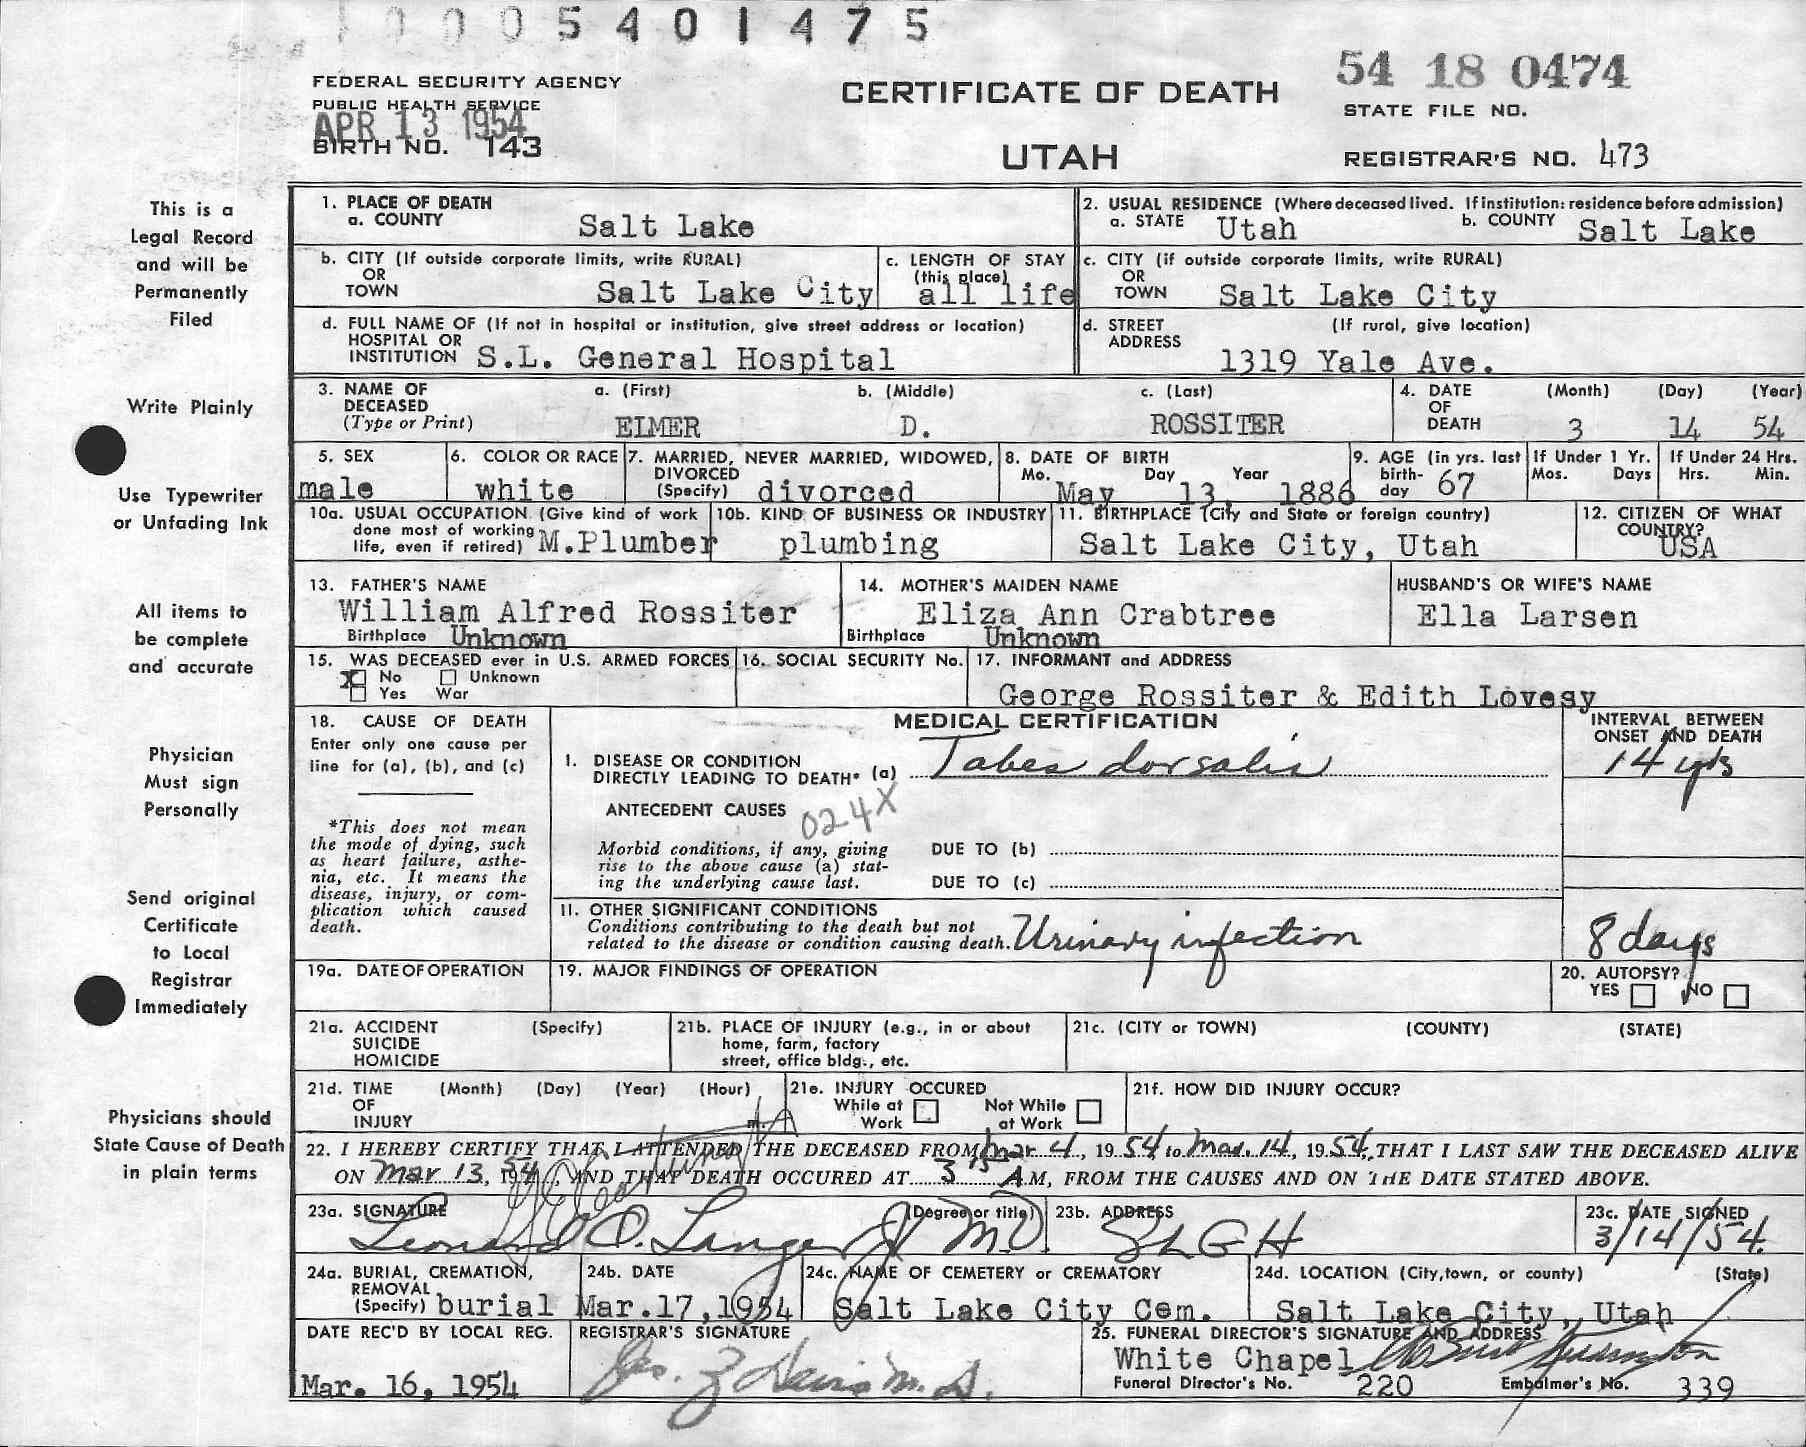 1 0 0 0 5 4 0 1 4 7 5
54 18 0474
FEDERAL SECURITY AGENCY
PUBLIC HEALTH SERVICE
APR 13 1954
BIRTH NO. 143
CERTIFICATE OF DEATH
UTAH
STATE FILE NO.
REGISTRAR'S NO. 473
This is a
Legal Record
and will be
Permanently
Filed
Write Plainly
Use Typewriter
or Unfading Ink
All items to
be complete
and accurate
Physician
Must sign
Personally
Send original
Certificate
to Local
Registrar
Immediately
Physicians should
State Cause of Death
in plain terms
1. PLACE OF DEATH
a. COUNTY Salt Lake
2. USUAL RESIDENCE (Where deceased lived. If institution: residence before admission)
a. STATE Utah b. COUNTY Salt Lake
b. CITY (If outside corporate limits, write RURAL)
OR
TOWN Salt Lake City
c. LENGTH OF STAY
(this place)
all life
c. CITY (if outside corporate limits, write RURAL)
OR
TOWN Salt Lake City
d. FULL NAME OF (If not in hospital or institution, give street address or location)
HOSPITAL OR
INSTITUTION S.L. General Hospital
d. STREET (If rural, give location)
ADDRESS
1319 Yale Ave.
3. NAME OF a. (First) b. (Middle) c. (Last)
DECEASED
(Type or Print) ELMER D. ROSSITER
4. DATE (Month) (Day) (Year)
OF
DEATH 3 14 54
5. SEX
male
6. COLOR OR RACE
white
7. MARRIED, NEVER MARRIED, WIDOWED,
DIVORCED
(Specify) divorced
8. DATE OF BIRTH
Mo. Day Year
May 13, 1886
9. AGE (in yrs. last
birth-
day 67
If Under 1 Yr.
Mos. Days
If Under 24 Hrs.
Hrs. Min.
10a. USUAL OCCUPATION (Give kind of work
done most of working
life, even if retired) M.Plumber
10b. KIND OF BUSINESS OR INDUSTRY
plumbing
11. BIRTHPLACE (City and State or foreign country)
Salt Lake City, Utah
12. CITIZEN OF WHAT
COUNTRY?
USA
13. FATHER'S NAME
William Alfred Rossiter
Birthplace Unknown
14. MOTHER'S MAIDEN NAME
Eliza Ann Crabtree
Birthplace Unknown
HUSBAND'S OR WIFE'S NAME
Ella Larsen
15. WAS DECEASED ever in U.S. ARMED FORCES
X No Unknown
Yes War
16. SOCIAL SECURITY No.
17. INFORMANT and ADDRESS
George Rossiter & Edith Lovesy
18. CAUSE OF DEATH
Enter only one cause per
line for (a), (b), and (c)
*This does not mean
the mode of dying, such
as heart failure, asthe-
nia, etc. It means the
disease, injury, or com-
plication which caused
death.
MEDICAL CERTIFICATION
INTERVAL BETWEEN
ONSET AND DEATH
I. DISEASE OR CONDITION
DIRECTLY LEADING TO DEATH* (a) Tabes dorsalis
14 yrs
ANTECEDENT CAUSES 024X
Morbid conditions, if any, giving
rise to the above cause (a) stat-
ing the underlying cause last.
DUE TO (b)
DUE TO (c)
11. OTHER SIGNIFICANT CONDITIONS
Conditions contributing to the death but not
related to the disease or condition causing death. Urinary infection
8 days
19a. DATE OF OPERATION
19. MAJOR FINDINGS OF OPERATION
20. AUTOPSY?
YES NO
21a. ACCIDENT (Specify)
SUICIDE
HOMICIDE
21b. PLACE OF INJURY (e.g., in or about
home, farm, factory
street, office bldg., etc.
21c. (CITY or TOWN) (COUNTY) (STATE)
21d. TIME (Month) (Day) (Year) (Hour)
OF
INJURY m.
21e. INJURY OCCURED
While at Work
Not While at Work
21f. HOW DID INJURY OCCUR?
22. I HEREBY CERTIFY THAT I ATTENDED THE DECEASED FROM Mar 4, 1954 to Mar. 14, 1954, THAT I LAST SAW THE DECEASED ALIVE
ON Mar 13, 1954, AND THAT DEATH OCCURED AT 3 15 A M, FROM THE CAUSES AND ON THE DATE STATED ABOVE.
23a. SIGNATURE (Degree or title)
Leonard O. Langer Jr M.D.
23b. ADDRESS
SLGH
23c. DATE SIGNED
3/14/54.
24a. BURIAL, CREMATION,
REMOVAL
(Specify) burial
24b. DATE
Mar.17,1954
24c. NAME OF CEMETERY or CREMATORY
Salt Lake City Cem.
24d. LOCATION (City, town, or county) (State)
Salt Lake City, Utah
DATE REC'D BY LOCAL REG.
Mar. 16, 1954
REGISTRAR'S SIGNATURE
Jas. Z Davis M.D.
25. FUNERAL DIRECTOR'S SIGNATURE AND ADDRESS
White Chapel
Funeral Director's No. 220 Embalmer's No. 339